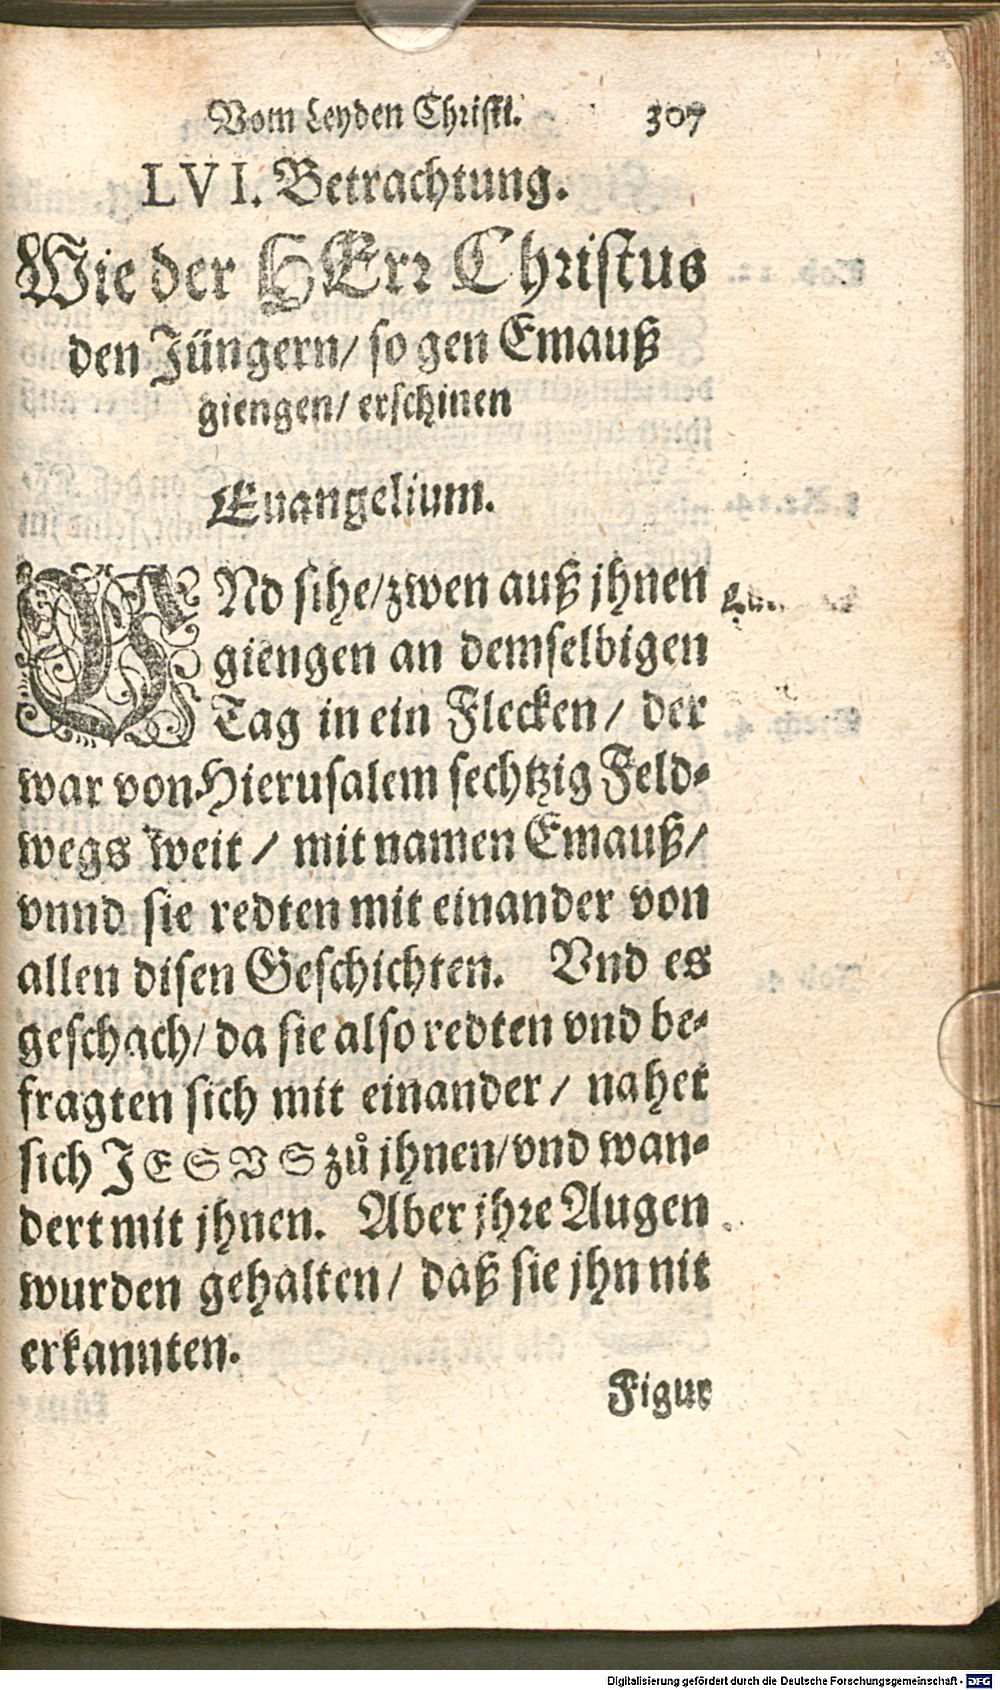 Vom Leyden Christi. 307
LVI. Betrachtung.
Wie der HErr Christus
den Jüngern/ so gen Emauß
giengen/ erschinen
Euangelium.
VNd sihe/ zwen auß jhnen
giengen an demselbigen
Tag in ein Flecken/ der
war von Hierusalem sechtzig Feld-
wegs weit/ mit namen Emauß/
vnnd sie redten mit einander von
allen disen Geschichten. Vnd es
geschach/ da sie also redten vnd be-
fragten sich mit einander/ nahet
sich JESVS zů jhnen/ vnd wan-
dert mit jhnen. Aber jhre Augen
wurden gehalten/ daß sie jhn nit
erkannten.
Figur
Digitalisierung gefördert durch die Deutsche Forschungsgemeinschaft - DFG